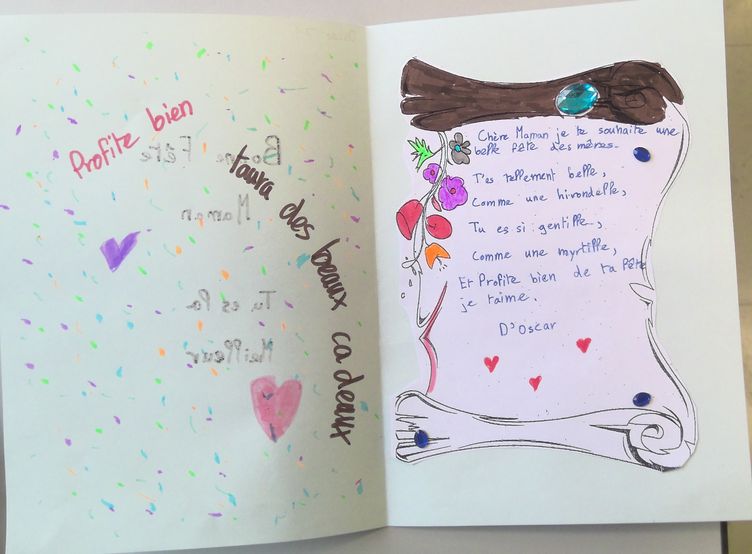 Profite bien
taura des beaux cadeaux
Bonne Fête
Maman
Tu es la
Meilleur
Chère Maman je te souhaite une
belle fête des mères.
T'es tellement belle,
Comme une hirondelle,
Tu es si gentille,
Comme une myrtille,
Et Profite bien de ta fête
je t'aime.
D'Oscar